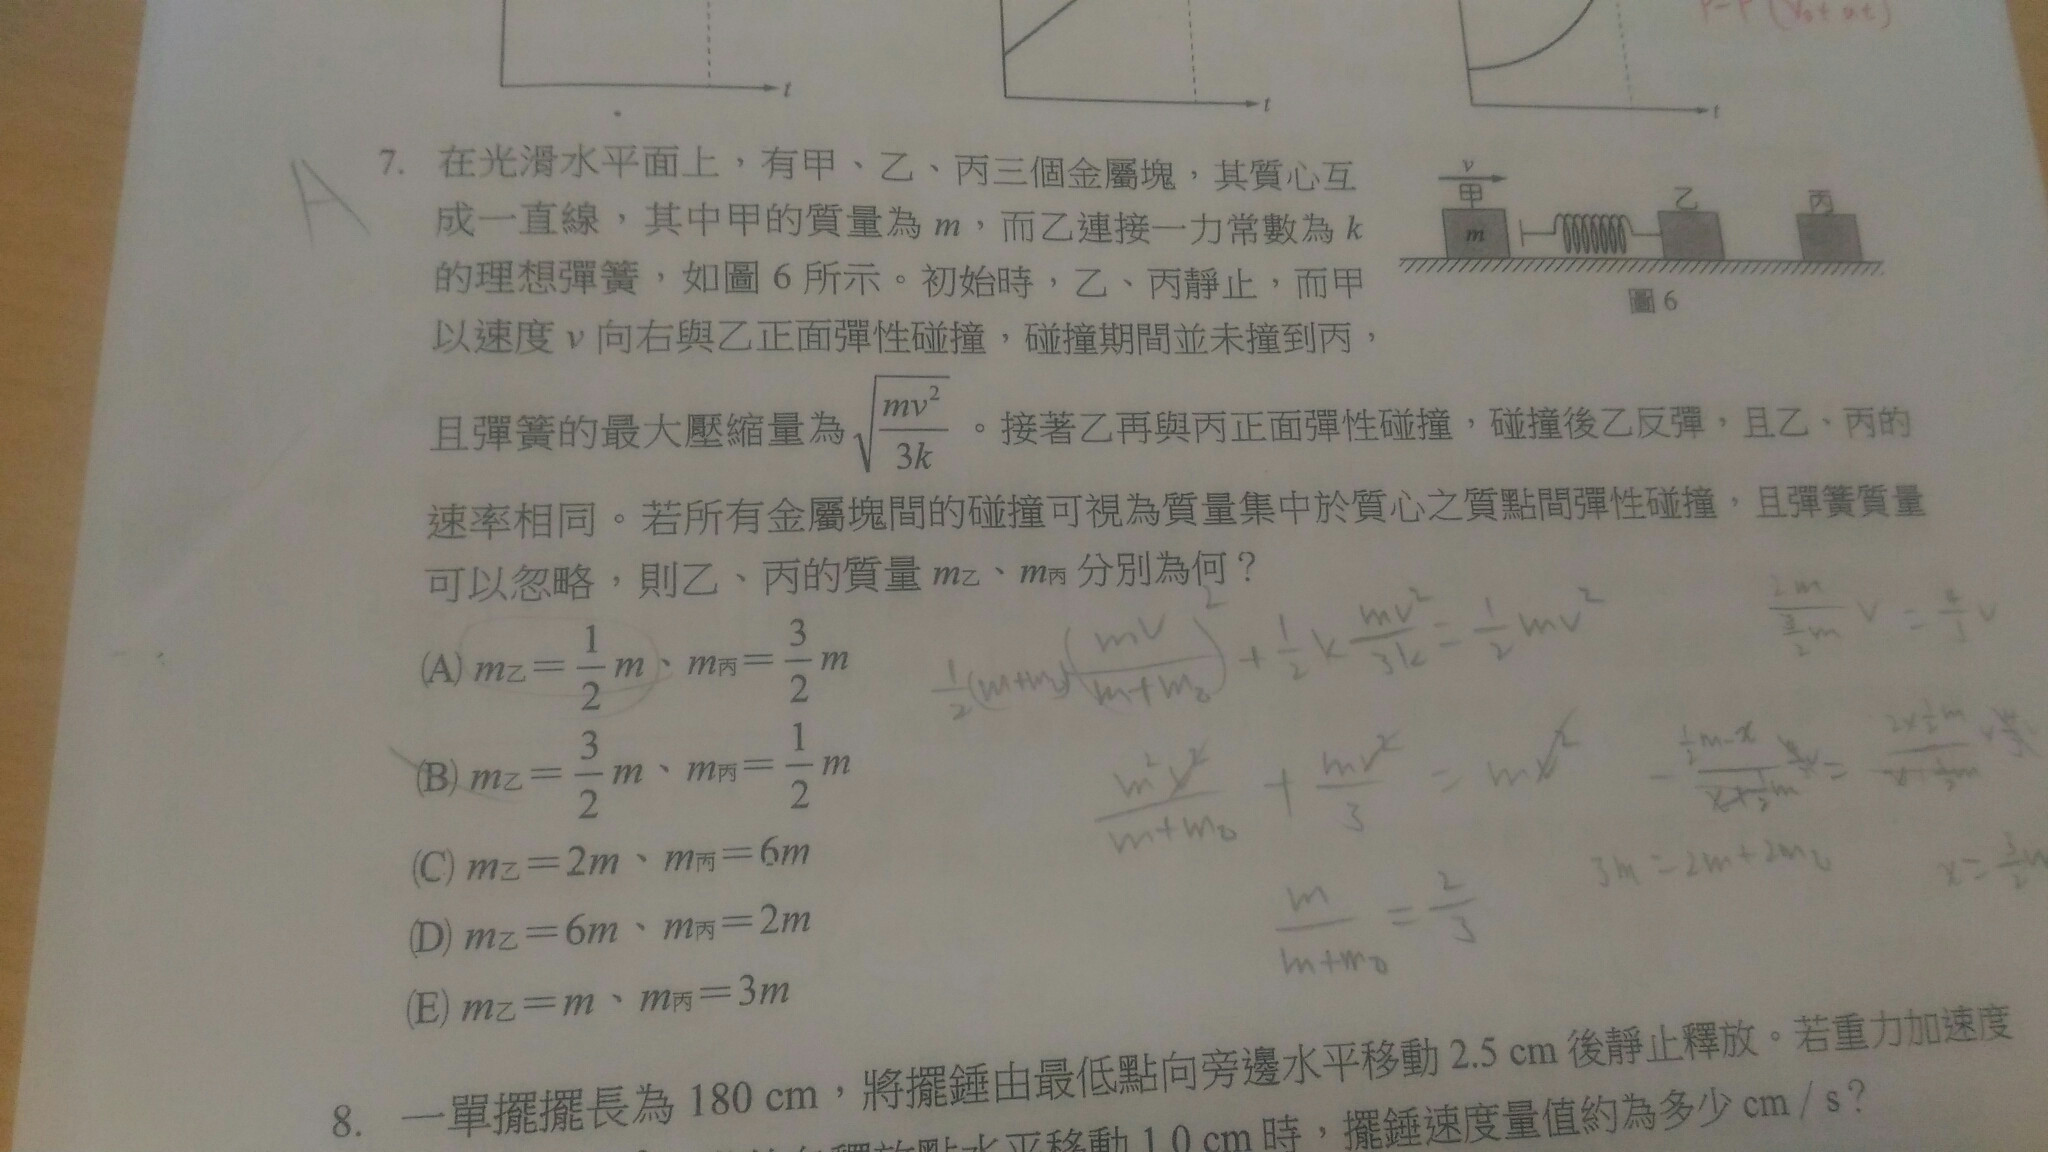 t
t
t
7. 在光滑水平面上，有甲、乙、丙三個金屬塊，其質心互
成一直線，其中甲的質量為 m，而乙連接一力常數為 k
的理想彈簧，如圖 6 所示。初始時，乙、丙靜止，而甲
以速度 v 向右與乙正面彈性碰撞，碰撞期間並未撞到丙，
且彈簧的最大壓縮量為 √(mv²/3k) 。接著乙再與丙正面彈性碰撞，碰撞後乙反彈，且乙、丙的
速率相同。若所有金屬塊間的碰撞可視為質量集中於質心之質點間彈性碰撞，且彈簧質量
可以忽略，則乙、丙的質量 m乙、m丙 分別為何？
v
甲 乙 丙
m
圖 6
A
(A) m乙＝1/2 m、m丙＝3/2 m
(B) m乙＝3/2 m、m丙＝1/2 m
(C) m乙＝2m、m丙＝6m
(D) m乙＝6m、m丙＝2m
(E) m乙＝m、m丙＝3m
1/2 (m+m₀)(mv/(m+m₀))² + 1/2 k mv²/3k = 1/2 mv²
m²v²/(m+m₀) + mv²/3 = mv²
m/(m+m₀) = 2/3
3m = 2m + 2m₀
8. 一單擺擺長為 180 cm，將擺錘由最低點向旁邊水平移動 2.5 cm 後靜止釋放。若重力加速度
水平移動 1.0 cm 時，擺錘速度量值約為多少 cm / s？